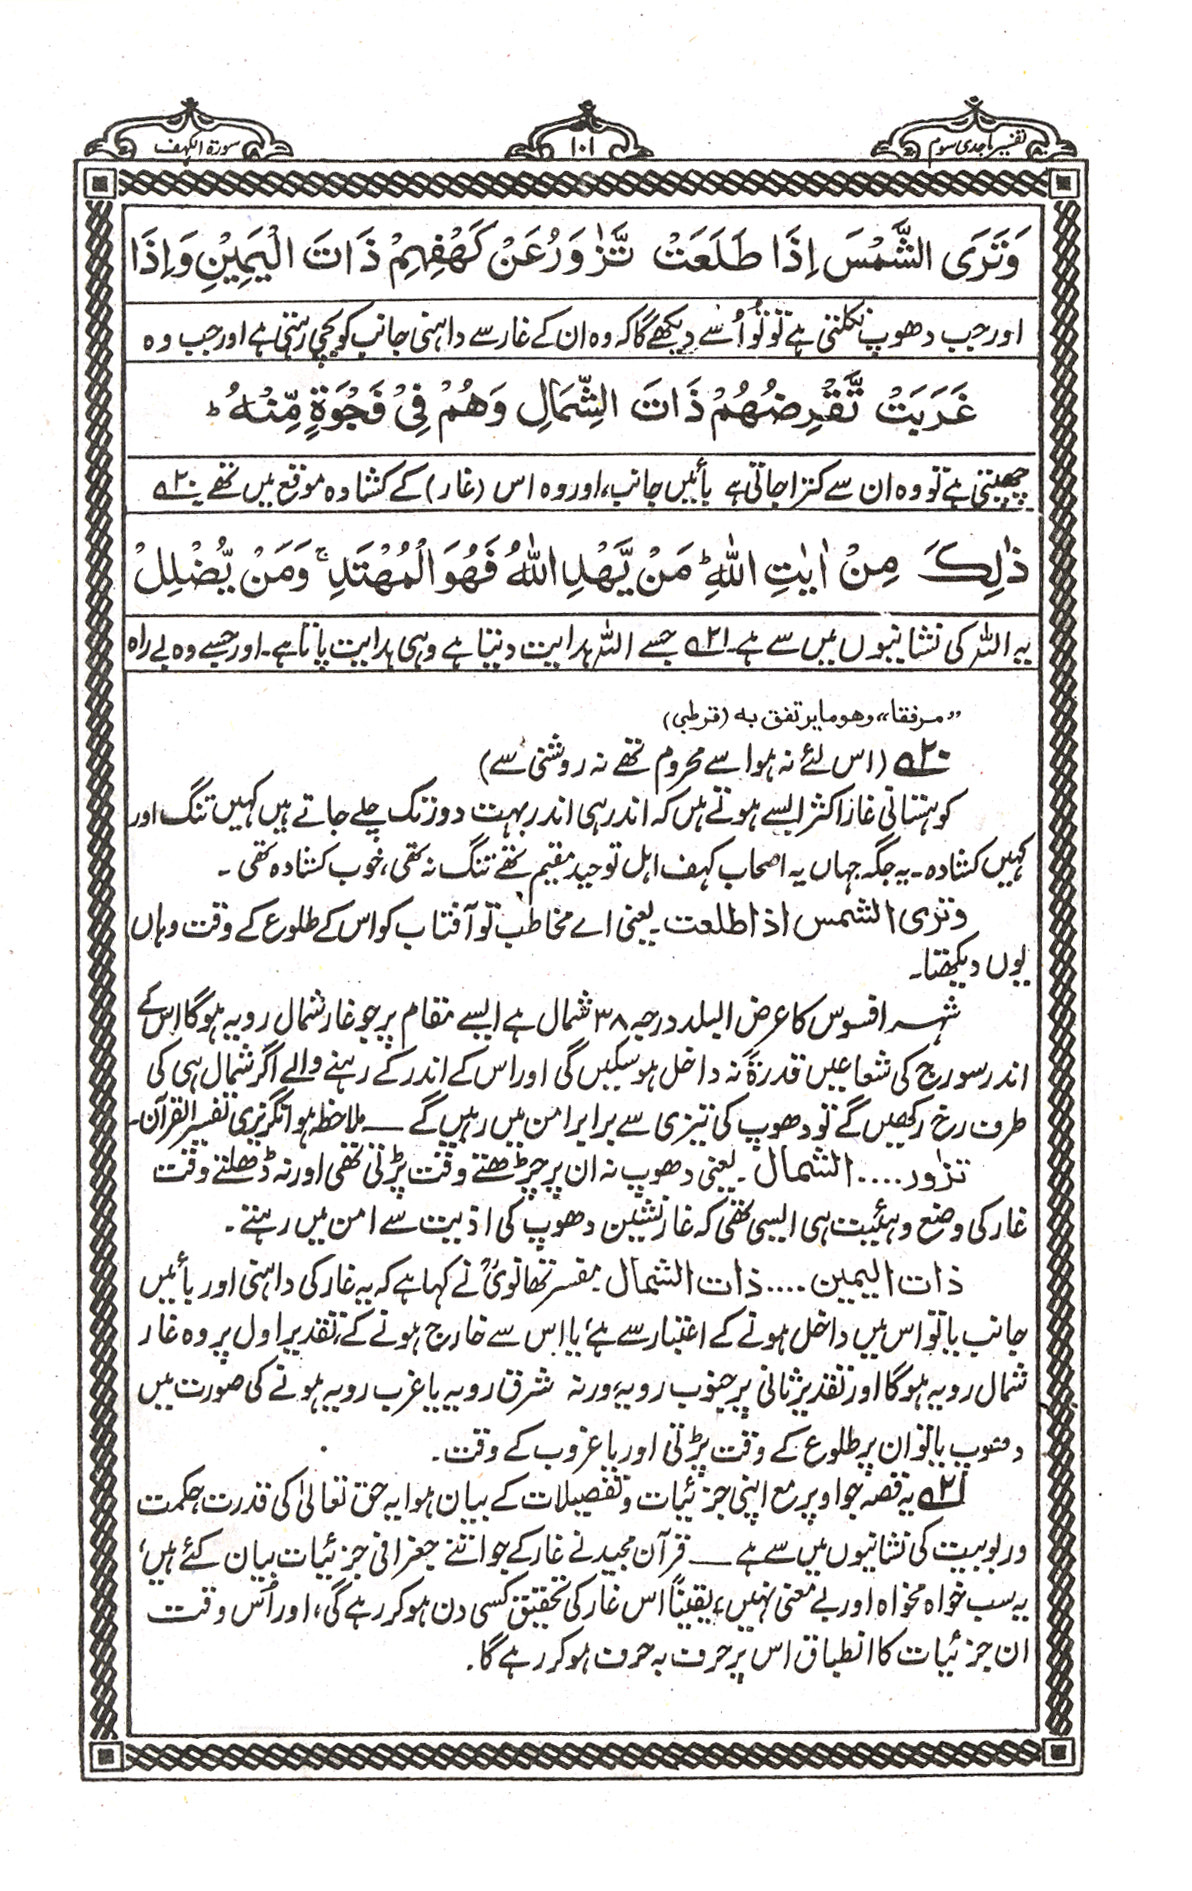 تفسیر ماجدی سوم
۱۰۱
سورۃ الکہف
وَتَرَى الشَّمْسَ اِذَا طَلَعَتْ تَّزٰوَرُ عَنْ كَهْفِهِمْ ذَاتَ الْيَمِيْنِ وَاِذَا
اور جب دھوپ نکلتی ہے تو تُو اُسے دیکھے گا کہ وہ ان کے غار سے داہنی جانب کو بچی رہتی ہے اور جب وہ
غَرَبَتْ تَّقْرِضُهُمْ ذَاتَ الشِّمَالِ وَهُمْ فِيْ فَجْوَةٍ مِّنْهُ ؕ
چھپتی ہے تو وہ ان سے کترا جاتی ہے بائیں جانب، اور وہ اس (غار) کے کشادہ موقع میں تھے ۲۰؎
ذٰلِكَ مِنْ اٰيٰتِ اللّٰهِ ؕ مَنْ يَّهْدِ اللّٰهُ فَهُوَ الْمُهْتَدِ ۚ وَمَنْ يُّضْلِلْ
یہ اللہ کی نشانیوں میں سے ہے۔ ۲۱؎ جسے اللہ ہدایت دیتا ہے وہی ہدایت پاتا ہے۔ اور جسے وہ بے راہ
”مرفقا“ وهو ما يرتفق به (قرطبی)
۲۰؎ (اس لئے نہ ہوا سے محروم تھے نہ روشنی سے)
کوہستانی غار اکثر ایسے ہوتے ہیں کہ اندر ہی اندر بہت دور تک چلے جاتے ہیں کہیں تنگ اور
کہیں کشادہ۔ یہ جگہ جہاں یہ اصحاب کہف اہل توحید مقیم تھے تنگ نہ تھی، خوب کشادہ تھی۔
وتری الشمس اذا طلعت۔ یعنی اے مخاطب تو آفتاب کو اس کے طلوع کے وقت وہاں
یوں دیکھتا۔
شہر افسوس کا عرض البلد درجہ ۳۸ شمال ہے ایسے مقام پر جو غار شمال رویہ ہوگا اس کے
اندر سورج کی شعاعیں قدرۃً نہ داخل ہو سکیں گی اور اس کے اندر کے رہنے والے اگر شمال ہی کی
طرف رخ رکھیں گے تو دھوپ کی تیزی سے برابر امن میں رہیں گے —— ملاحظہ ہو انگریزی تفسیر القرآن۔
تزٰور .... الشمال۔ یعنی دھوپ نہ ان پر چڑھتے وقت پڑتی تھی اور نہ ڈھلتے وقت
غار کی وضع و ہیئت ہی ایسی تھی کہ غار نشین دھوپ کی اذیت سے امن میں رہتے۔
ذات الیمین .... ذات الشمال۔ مفسر تھانویؒ نے کہا ہے کہ یہ غار کی داہنی اور بائیں
جانب یا تو اس میں داخل ہونے کے اعتبار سے ہے، یا اس سے خارج ہونے کے، تقدیر اول پر وہ غار
شمال رویہ ہوگا اور تقدیر ثانی پر جنوب رویہ، ورنہ شرق رویہ یا غرب رویہ ہونے کی صورت میں
دھوپ یا تو ان پر طلوع کے وقت پڑتی اور یا غروب کے وقت۔
۲۱؎ یہ قصہ جو اوپر مع اپنی جزئیات و تفصیلات کے بیان ہوا یہ حق تعالیٰ کی قدرت، حکمت
و ربوبیت کی نشانیوں میں سے ہے —— قرآن مجید نے غار کے جو اتنے جغرافی جزئیات بیان کئے ہیں،
یہ سب خواہ مخواہ اور بے معنی نہیں، یقیناً اس غار کی تحقیق کسی دن ہو کر رہے گی، اور اُس وقت
ان جزئیات کا انطباق اس پر حرف بہ حرف ہو کر رہے گا۔